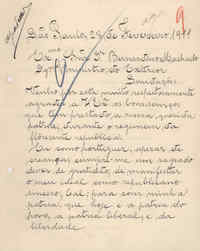 9
São Paulo, 28 de Fevereiro, 1911
Exmo Snr. Dr. Bernardino Machado
Dgmo Ministro do Exterior
Saudações.
Venho por este muito respeitosamente
agradecer a V. Exª
tem prestado, a nossa querida
patria, durante o regimem da
florente republica.
Eu como portuguez, apezar de
creança cumpri-me um sagrado
dever de gratidão, de manifestar
o meu ideal como republicano
sincero, e leal; para com minha
patria, que hoje é a patria do
povo, a patria liberal, e da
liberdade